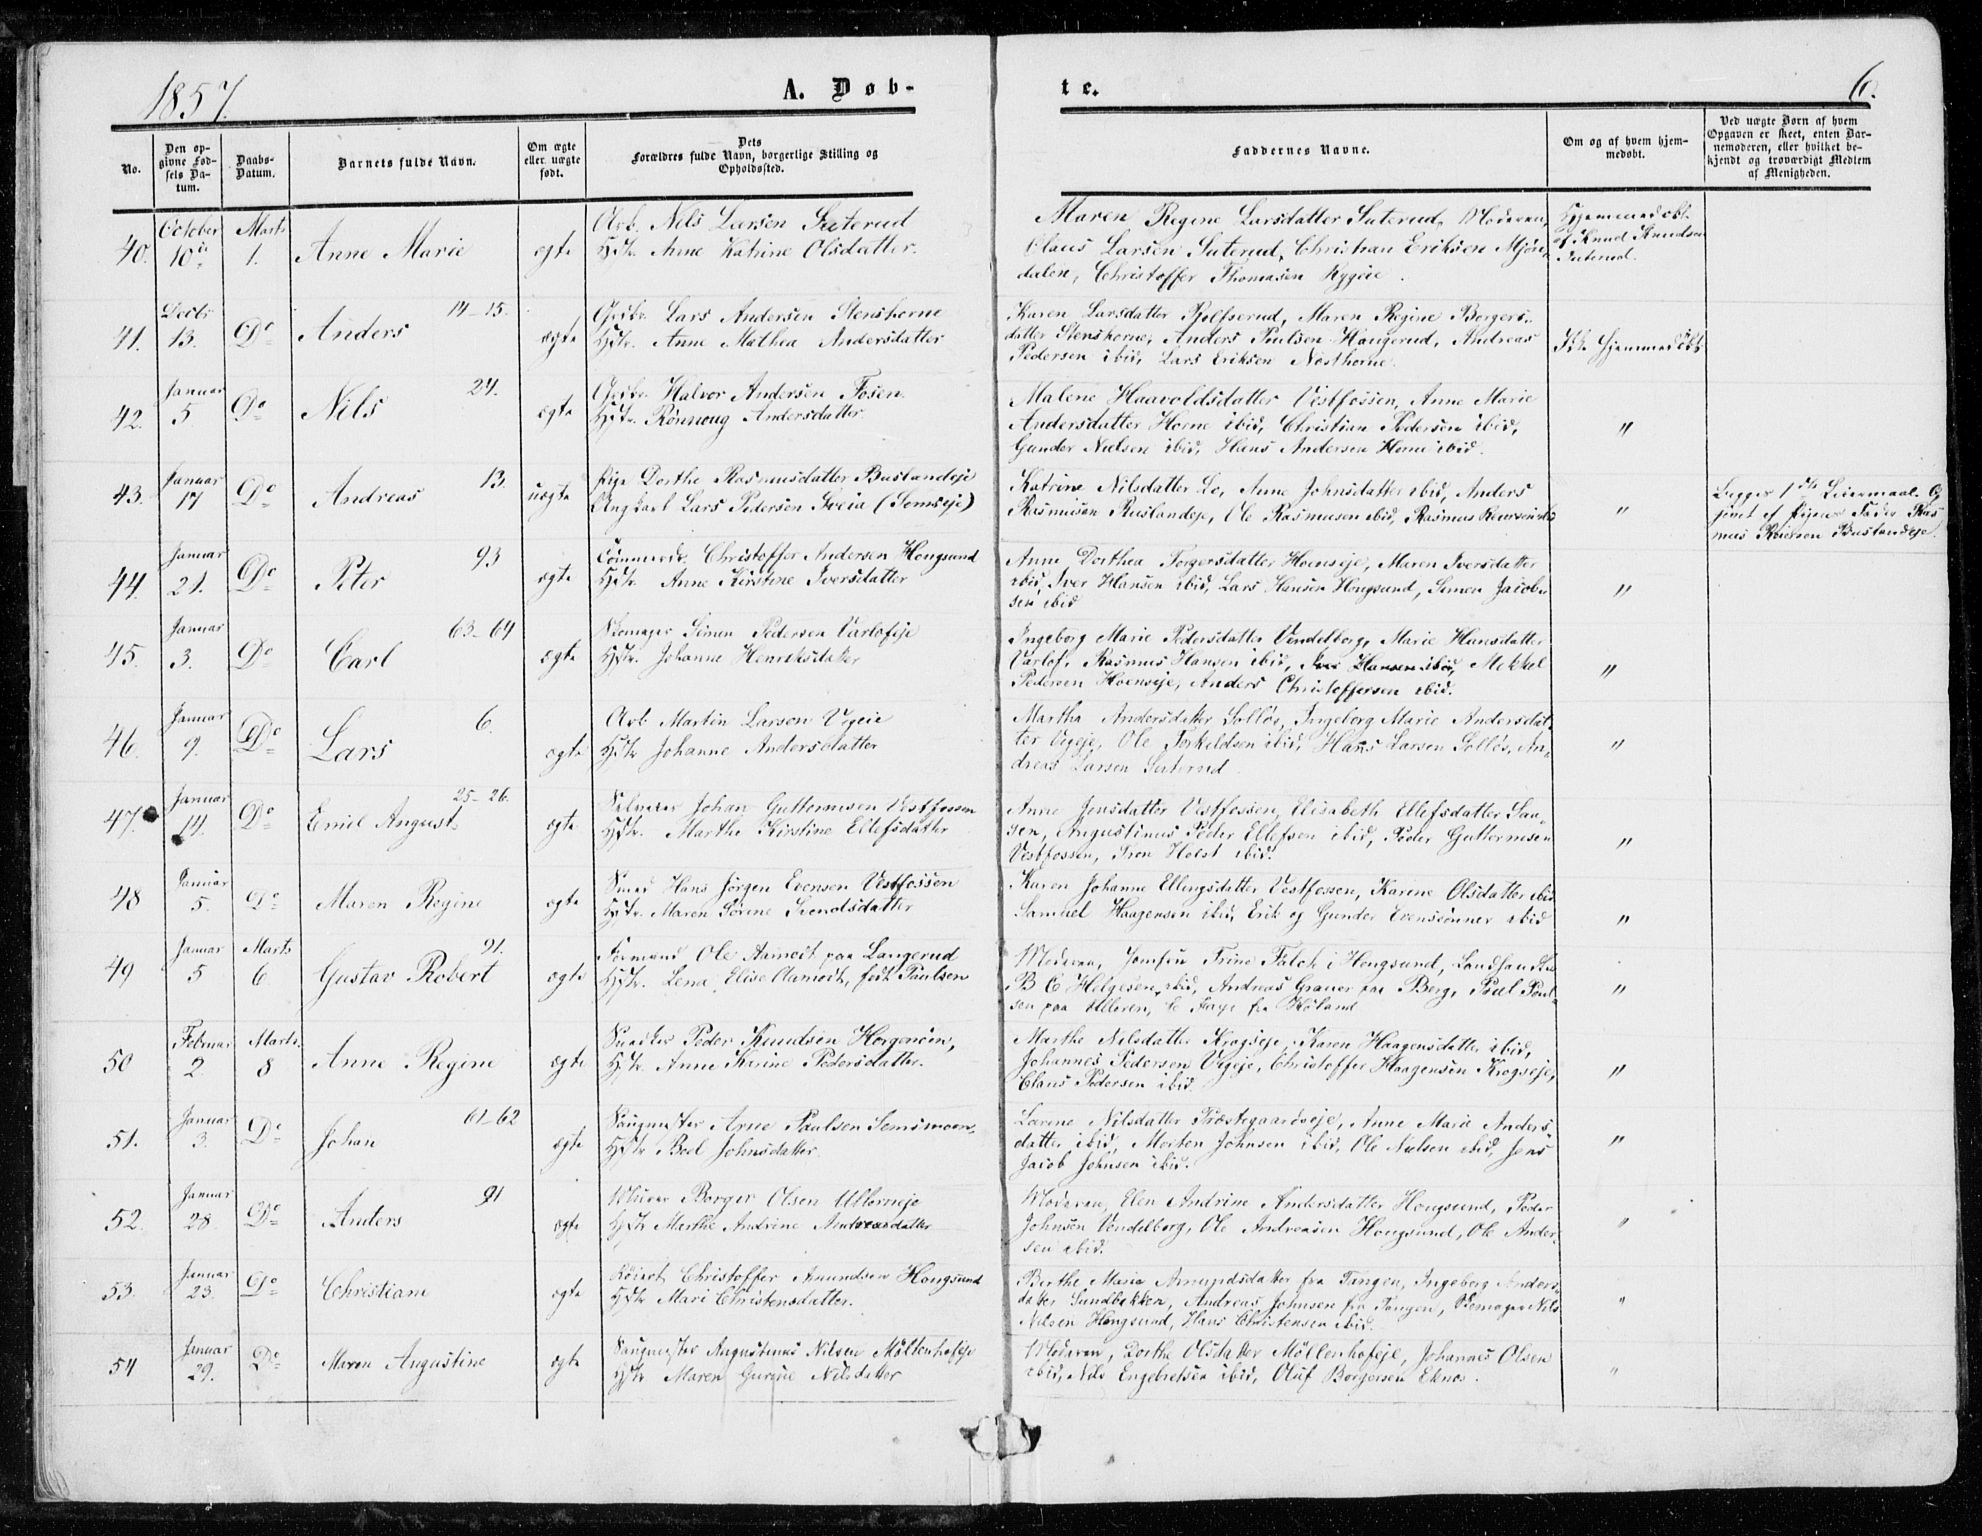 1857.
A. Døb-
te.
6.
No.
Den op-
givne Fød-
sels Da-
tum.
Daabs-
Datum.
Barnets fulde Navn.
Om ægte
eller uægte
født.
Dets
Forældres fulde Navn, borgerlige Stilling og
Opholdssted.
Faddernes Navne.
Om og af hvem hjem-
medøbt.
Ved uægte Børn af hvem
Opgaven er skeet, enten Bar-
nemoderen, eller hvilket be-
kjendt og troværdigt Medlem
af Menigheden.
40. October 10de Marts 1. Anne Marie ægte
Arb. Nels Larsen Suterud
Hstr. Anne Katrine Olsdatter.
Maren Regine Larsdatter Suterud, Moderen,
Claus Larsen Suterud, Christian Eriksen Mjøn-
dalen, Christoffer Thomasen Rygeie.
Hjemmedøbt
af Knud Knudsen
Suterud.
41. Decbr 13. Do Anders 14-15. ægte
Lars Andersen Stenshorne
Hstr. Anne Mathea Andersdatter
Karen Larsdatter Maren Regine Borgers-
datter Stenshorne, Anders Poulsen Haugerud, Andreas
Pedersen ibid, Lars Eriksen Nosthorne.
Ikke hjemmedøbt
42. Januar 5 Do Nils 24. ægte
Halvor Andersen Fosen
Hstr. Rønnoug Andersdatter.
Malene Haavoldsdatter Vestfossen, Anne Marie
Andersdatter Horne ibid, Christian Pedersen ibid,
Gunder Nielsen ibid, Hans Andersen Horne ibid.
"
43. Januar 17 Do Andreas 13. uægte
Pige Dorthe Rasmusdatter Buslandeje
Ungkarl Lars Pedersen Sveia (Semseje)
Katrine Nilsdatter Lo, Anne Johnsdatter ibid, Anders
Rasmusen Buslandeje, Ole Rasmusen ibid, Rasmus
"
Begges 1ste Leiermaal.
givet af Pigens Fader Ras-
mus Buslandeje.
44. Januar 21. Do Peter 93 ægte
Christoffer Andersen Hougsund
Hstr. Anne Kirstine Iversdatter
Anne Dorthea Torgersdatter Hoenseje, Maren Iversdatter
ibid, Iver Hansen ibid, Lars Hansen Hougsund, Simen Jacob-
sen ibid
"
45. Januar 3. Do Carl 63-64 ægte
Skomager Simen Pedersen Varlofeje
Hstr. Johanne Henriksdatter
Ingeborg Marie Pedersdatter Vendelborg, Marie Hansdatter
Varlof, Rasmus Hansen ibid, Mekkel
Pedersen Hoenseje, Anders Christoffersen ibid.
"
46. Januar 9. Do Lars 6. ægte
Arb Martin Larsen Vegeie
Hstr Johanne Andersdatter
Martha Andersdatter Solløs, Ingeborg Marie Andersdat-
ter Vegeje, Ole Torkildsen ibid, Hans Larsen Solløs, An-
dreas Larsen Suterud
"
47. Januar 14. Do Emil August. 25-26. ægte
Johan Guttormsen Vestfossen
Hstr. Marthe Kirstine Ellefsdatter
Anne Jensdatter Vestfossen, Elisabeth Ellefsdatter Sau-
gen, Augustinus Peder Ellefsen ibid, Peder Guttormsen
Vestfossen, Holst ibid.
"
48 Januar 5. Do Maren Regine ægte
Smed Hans Jørgen Evensen Vestfossen
Hstr. Maren Sørine Svendsdatter
Karen Johanne Ellingsdatter Vestfossen, Karine Olsdatter ibid
Samuel Haagensen ibid, Erik og Gunder Evenssønner ibid
"
49 Januar 5 Marts 6 Gustav Robert 91. ægte
Formand Ole Aamodt paa Langerud
Hstr. Lena Elise Aamodt, født Paulsen
Moderen, Jomfru Trine Falch i Hougsund, Landhandler
B C Helgesen ibid, Andreas Graver fra Berg, Poul Poul-
sen paa fra Høland
"
50 Februar 2. Marts 8 Anne Regine ægte
Peder Knudsen Horgenøien,
Hstr. Anne Karine Pedersdatter.
Marthe Nilsdatter Krogseje, Karen Haagensdatter ibid,
Johannes Pedersen Vegeje, Christoffer Haagensen Krogseje,
Claus Pedersen ibid.
"
51. Januar 3. Do Johan 61-62 ægte
Saugmester Arne Paulsen Semsmoen,
Hstr Boel Johnsdatter.
Larine Nilsdatter Præstegaardseje, Anne Marie Anders-
datter ibid, Morten Johnsen ibid, Ole Nielsen ibid, Jens
Jacob Johnsen ibid.
"
52. Januar 28. Do Anders 91 ægte
Murer Borger Olsen Ullerneje
Hstr Marthe Andrine Andreasdatter
Moderen, Elen Andrine Andersdatter Hougsund, Peder
Johnsen Vendelborg, Ole Andreasen Hougsund, Ole Ander-
sen ibid.
"
53. Januar 23. Do Christiane ægte
Christoffer Amundsen Hougsund
Hstr Mari Christensdatter.
Berthe Maria Amundsdatter fra Tangen, Ingeborg Anders-
datter Sundbakken, Andreas Johnsen fra Tangen, Nils
Nilsen Hougsund, Hans Christensen ibid.
"
54 Januar 29. Do Maren Augustine ægte
Saugmester Augustinus Nilsen Møllenhofeje
Hstr Maren Gurine Nilsdatter
Moderen, Dorthe Olsdatter Møllenhofeje, Johannes Olsen
ibid, Nils Engebretsen ibid, Oluf Borgersen Eknes.
"